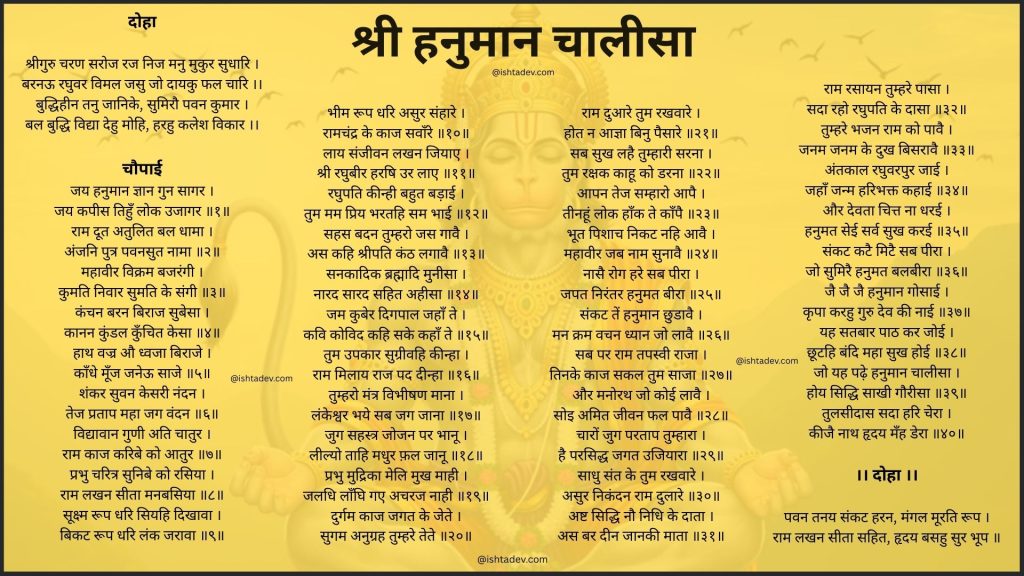 श्री हनुमान चालीसा
@ishtadev.com
दोहा
श्रीगुरु चरण सरोज रज निज मनु मुकुर सुधारि ।
बरनऊ रघुवर विमल जसु जो दायकु फल चारि ।।
बुद्धिहीन तनु जानिके, सुमिरौ पवन कुमार ।
बल बुद्धि विद्या देहु मोहि, हरहु कलेश विकार ।।
चौपाई
जय हनुमान ज्ञान गुन सागर ।
जय कपीस तिहुँ लोक उजागर ॥१॥
राम दूत अतुलित बल धामा ।
अंजनि पुत्र पवनसुत नामा ॥२॥
महावीर विक्रम बजरंगी ।
कुमति निवार सुमति के संगी ॥३॥
कंचन बरन बिराज सुबेसा ।
कानन कुंडल कुँचित केसा ॥४॥
हाथ वज्र औ ध्वजा बिराजे ।
काँधे मूँज जनेऊ साजे ॥५॥
शंकर सुवन केसरी नंदन ।
तेज प्रताप महा जग वंदन ॥६॥
विद्यावान गुणी अति चातुर ।
राम काज करिबे को आतुर ॥७॥
प्रभु चरित्र सुनिबे को रसिया ।
राम लखन सीता मनबसिया ॥८॥
सूक्ष्म रूप धरि सियहि दिखावा ।
बिकट रूप धरि लंक जरावा ॥९॥
@ishtadev.com
भीम रूप धरि असुर संहारे ।
रामचंद्र के काज सवाँरे ॥१०॥
लाय संजीवन लखन जियाए ।
श्री रघुबीर हरषि उर लाए ॥११॥
रघुपति कीन्ही बहुत बड़ाई ।
तुम मम प्रिय भरतहि सम भाई ॥१२॥
सहस बदन तुम्हरो जस गावै ।
अस कहि श्रीपति कंठ लगावै ॥१३॥
सनकादिक ब्रह्मादि मुनीसा ।
नारद सारद सहित अहीसा ॥१४॥
जम कुबेर दिगपाल जहाँ ते ।
कवि कोविद कहि सके कहाँ ते ॥१५॥
तुम उपकार सुग्रीवहि कीन्हा ।
राम मिलाय राज पद दीन्हा ॥१६॥
तुम्हरो मंत्र विभीषण माना ।
लंकेश्वर भये सब जग जाना ॥१७॥
जुग सहस्त्र जोजन पर भानू ।
लील्यो ताहि मधुर फ़ल जानू ॥१८॥
प्रभु मुद्रिका मेलि मुख माही ।
जलधि लाँघि गए अचरज नाही ॥१९॥
दुर्गम काज जगत के जेते ।
सुगम अनुग्रह तुम्हरे तेते ॥२०॥
@ishtadev.com
राम दुआरे तुम रखवारे ।
होत न आज्ञा बिनु पैसारे ॥२१॥
सब सुख लहै तुम्हारी सरना ।
तुम रक्षक काहू को डरना ॥२२॥
आपन तेज सम्हारो आपै ।
तीनहूं लोक हाँक ते काँपै ॥२३॥
भूत पिशाच निकट नहि आवै ।
महावीर जब नाम सुनावै ॥२४॥
नासै रोग हरे सब पीरा ।
जपत निरंतर हनुमत बीरा ॥२५॥
संकट तें हनुमान छुडावै ।
मन क्रम वचन ध्यान जो लावै ॥२६॥
सब पर राम तपस्वी राजा ।
तिनके काज सकल तुम साजा ॥२७॥
और मनोरथ जो कोई लावै ।
सोइ अमित जीवन फल पावै ॥२८॥
चारों जुग परताप तुम्हारा ।
है परसिद्ध जगत उजियारा ॥२९॥
साधु संत के तुम रखवारे ।
असुर निकंदन राम दुलारे ॥३०॥
अष्ट सिद्धि नौ निधि के दाता ।
अस बर दीन जानकी माता ॥३१॥
@ishtadev.com
राम रसायन तुम्हरे पासा ।
सदा रहो रघुपति के दासा ॥३२॥
तुम्हरे भजन राम को पावै ।
जनम जनम के दुख बिसरावै ॥३३॥
अंतकाल रघुवरपुर जाई ।
जहाँ जन्म हरिभक्त कहाई ॥३४॥
और देवता चित्त ना धरई ।
हनुमत सेई सर्व सुख करई ॥३५॥
संकट कटै मिटै सब पीरा ।
जो सुमिरै हनुमत बलबीरा ॥३६॥
जै जै जै हनुमान गोसाई ।
कृपा करहु गुरु देव की नाई ॥३७॥
यह सतबार पाठ कर जोई ।
छूटहि बंदि महा सुख होई ॥३८॥
जो यह पढ़े हनुमान चालीसा ।
होय सिद्धि साखी गौरीसा ॥३९॥
तुलसीदास सदा हरि चेरा ।
कीजै नाथ हृदय मँह डेरा ॥४०॥
।। दोहा ।।
पवन तनय संकट हरन, मंगल मूरति रूप ।
राम लखन सीता सहित, हृदय बसहु सुर भूप ॥